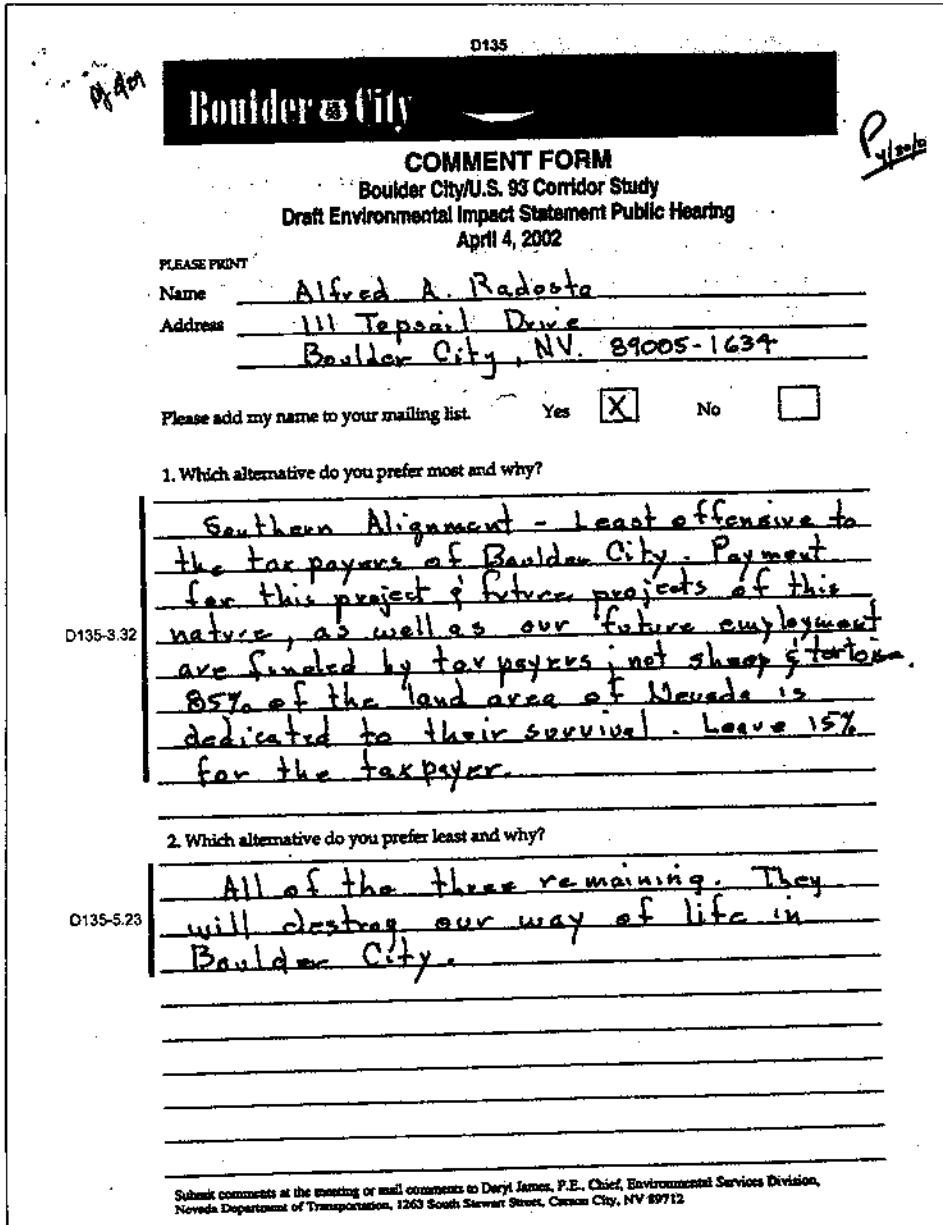 D135
Boulder City
COMMENT FORM
Boulder City/U.S. 93 Corridor Study
Draft Environmental Impact Statement Public Hearing
April 4, 2002
PLEASE PRINT
Name Alfred A. Radosta
Address 111 Topsail Drive
Boulder City, NV. 89005-1634
Please add my name to your mailing list. Yes X No
1. Which alternative do you prefer most and why?
Southern Alignment - Least offensive to
the taxpayers of Boulder City. Payment
for this project & future projects of this
D135-3.32 nature, as well as our future employment
are funded by taxpayers; not sheep & tortoise.
85% of the land area of Nevada is
dedicated to their survival. Leave 15%
for the taxpayer.
2. Which alternative do you prefer least and why?
All of the three remaining. They
D135-5.23 will destroy our way of life in
Boulder City.
Submit comments at the meeting or mail comments to Daryl James, P.E., Chief, Environmental Services Division,
Nevada Department of Transportation, 1263 South Stewart Street, Carson City, NV 89712